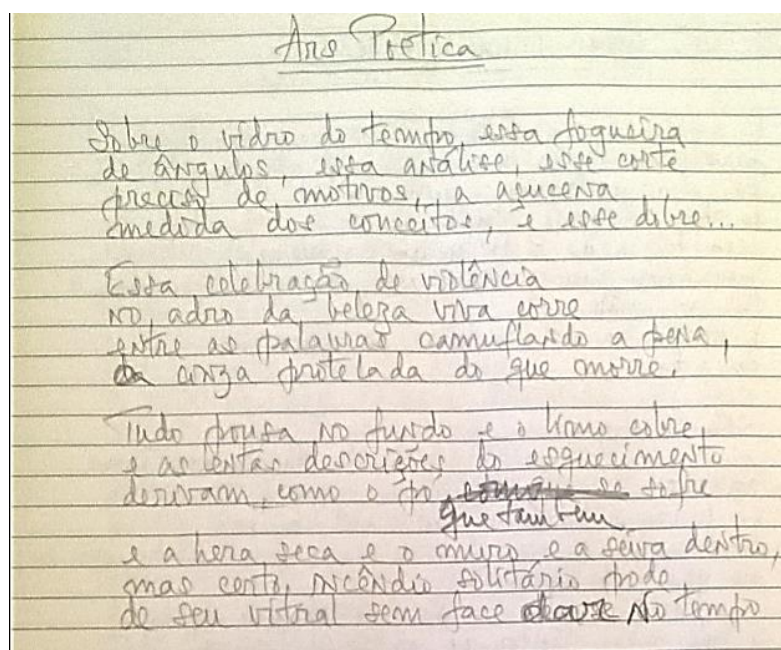 Ars Poetica
Sobre o vidro do tempo, essa fogueira
de ângulos, essa análise, esse corte
preciso de motivos, a açucena
medida dos conceitos, e esse dobre...
Essa celebração de violência
no adro da beleza viva corre
entre as palavras camuflando a pena,
a cinza protelada do que morre.
Tudo pousa no fundo e o limo cobre,
e as lentas descrições do esquecimento
derivam, como o pó, como que se sofre
que também
e a hera seca e o muro e a seiva dentro,
mas certo, incêndio solitário pode
de seu vitral sem face no tempo